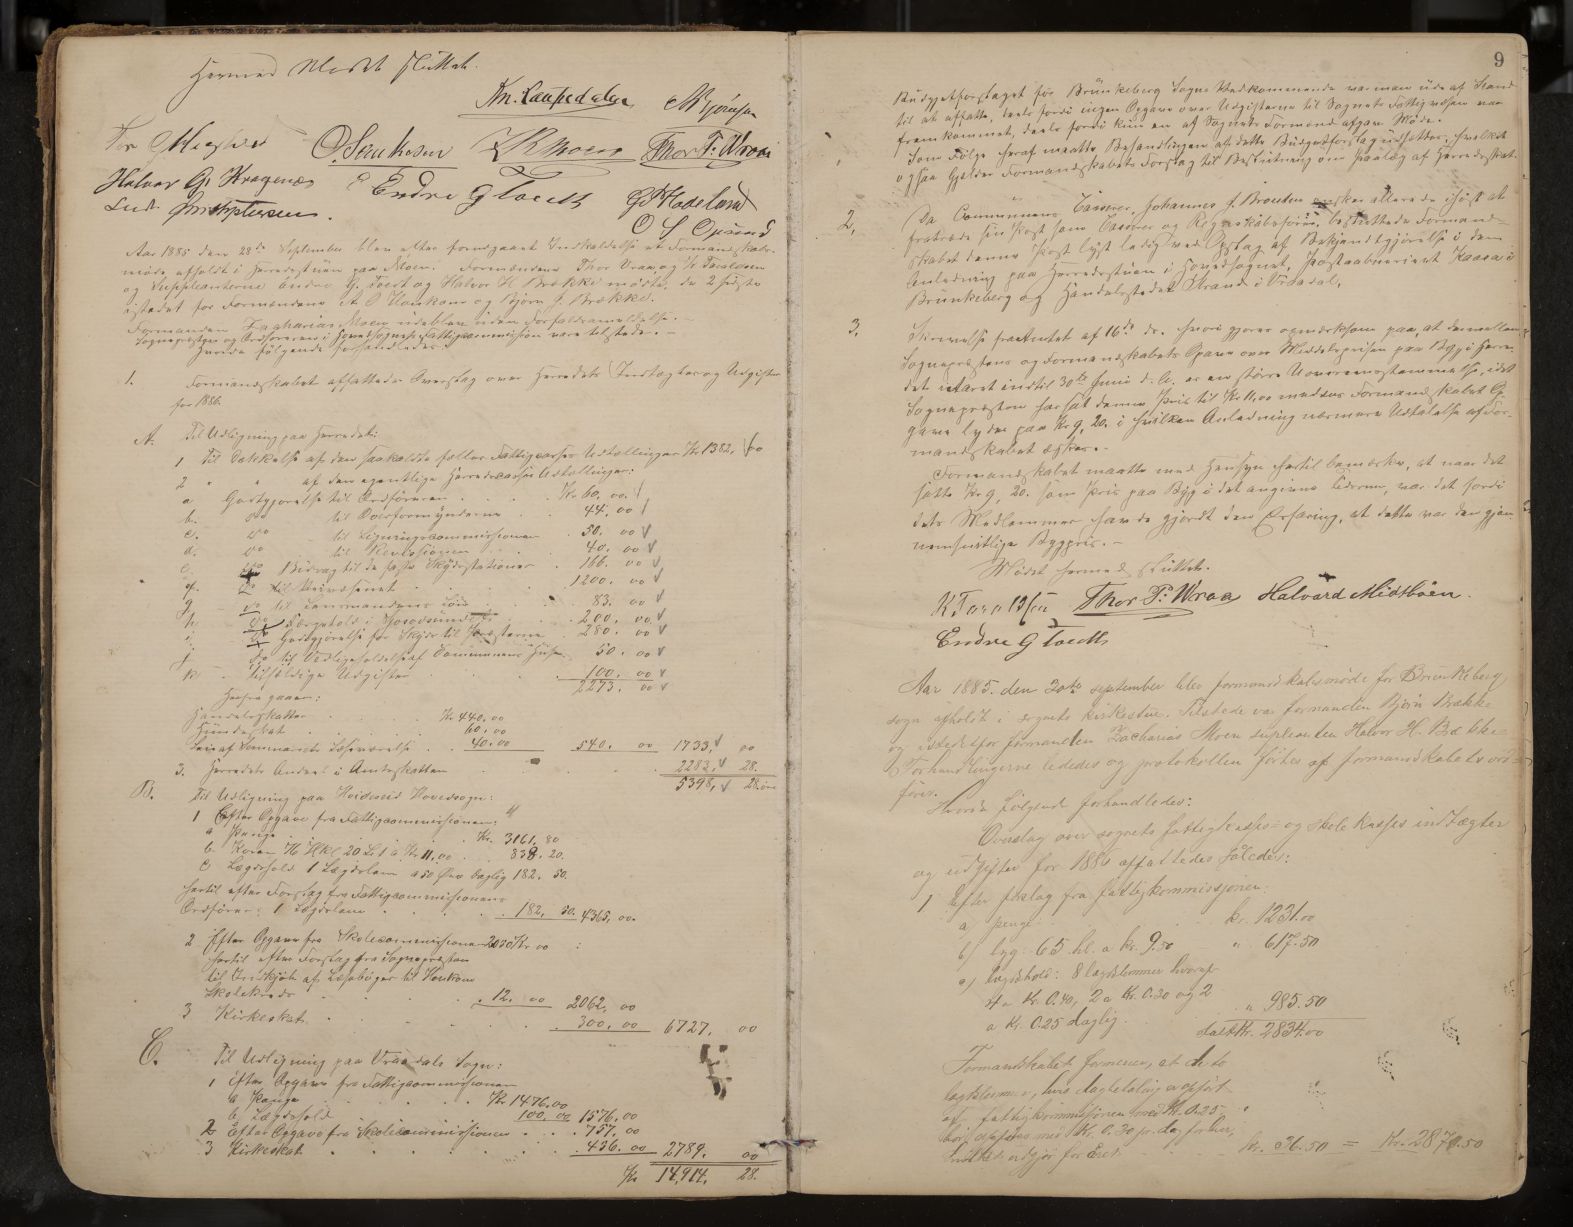 Hermed Mødet sluttet.
Kn. Laupedalen
Bjørnson
Tor
O. Sundbøen
Moen
Thor T: Wraa
Halvor G. Kragenæs
Endre G Tveith
G Hadeland
O S Opsund
Aar 1885 den 28de September blev efter foregaaet Indkaldelse et Formandskabs-
møde afholdt i Herredsstuen paa Moen. Formændene Thor Vraa, og K. Taraldsen
og Suppleanterne Endre G. Tveit og Halvor H Brække mødte, de 2 sidste
istedet for Formændene A O Haukom og Bjørn J. Brække.
Formanden Zacharias Moen udeblev uden Forfaldsanmeldelse. –
Sognepresten og Ordføreren i Hovedsognets Fattigcommission vare tilstede. –
Hvorda følgende forhandledes:
1. Formandskabet affattede Overslag over Herredets Indtægter og Udgifter
for 1886.
A. Til Udligning paa Herredet:
1 Til Dækkelse af den saakaldte fælles Fattigcasses Udtællinger Kr 1382, 00
2 " " af den egentlige Herredscasses Udtællinger:
a Godtgjørelse til Ordføreren . . . Kr. 60, 00.
b. Do til Overformynderne . 44, 00
c. Do til Ligningscommissionen . 50. 00
d. Do til Revisionen . 40. 00
e. Bidrag til de faste Skydsstationer . 166. 00
f. Do til Veivæsenet . . 1200. 00
g Do til Lensmandens Løn . . 83. 00
h Do Færgehold i . 200. 00
i Godtgjørelse for Skyds til Presterne . 280. 00
j Do til Vedligeholdelse af Communens Huse 50. 00
k – Tilfældige Udgifter . . 100. 00
2273. 00
Herfra gaaer:
Handelsskatten . . . Kr 440. 00
Hundeskat . . . 60. 00
Leie af Communens . . 40. 00 540. 00 1733, 00
3. Herredets Andel i Amtsskatten . . . 2283, 28.
5398, 28. øre
B. Til Udligning paa Hvideseid Hovedsogn:
1 Efter Opgave fra Fattigcommissionen:
a Penge . . . Kr. 3161. 80
b. Korn 76 Hkl 20 Lit a Kr 11,00 . . 838. 20.
c Lægdshold 1 Lægdslem a 50 Øre daglig 182. 50.
hertil efter Forslag fra Fattigcommissionens
Ordfører: 1 Lægdslem . . . 182, 50. 4365, 00.
2 Efter Opgave fra Skolecommissionen 2050 Kr 00
hertil efter Forslag fra Sognepresten
til Indkjøb af Læsebøger til
Skolekreds . . . . 12. 00 2062, 00
3 Kirkeskat . . . 300. 00 6727, 00
C. Til Udligning paa Vraadals Sogn:
1 Efter Opgave fra Fattigcommissionen
a Penge . . . Kr. 1476.00
b Lægdshold . . . 100. 00 1576. 00
2 Efter Opgave fra Skolecommissionen . . . 757. 00
3 Kirkeskat . . . 456. 00 2789. 00
Kr 14,914. 28.
9
Budgetforslaget for Brünkeberg Sogns Vedkommende var man ude af Stand
til at affatte, deels fordi ingen Opgave over Udgifterne til Sognets Fattigvæsen var
fremkommet, deels fordi kun en af Sognets Formænd afgav Møde.
Som Følge heraf maatte Behandlingen af dette Budgetforslag udsættes, hvilket
ogsaa gjelder Formandskabets Forslag til Bestemning om Paalæg af Herredsskat.
2, Da Communens Casserer, Johannes J. Brauten ønsker allerede ihøst at
fratræde sin Post som Casserer og Regnskabsfører, besluttede Formand-
skabet denne Post lyst ledig ved Opslag af Bekjendtgjørelse i den
Anledning paa Herredsstuen i Hovedsognet, Postaabneriet Kaasa i
Brünkeberg og Handelsstedet Strand i Vraadal.
3. Skrivelse fra Amtet af 16de ds. hvori gjøres opmærksom paa, at der mellem
Sogneprestens og Formandskabets Opgave over Middelprisen paa Byg i Herre-
det i Aaret indtil 30te Juni d. A. er en større Uoverensstemmelse, idet
Sognepresten har sat denne Pris til Kr 11,00 medens Formandskabets Op-
gave lyder paa Kr 9, 20. i hvilken Anledning nærmere Udtalelse af For-
mandskabet æskes. –
Formandskabet maatte med Hensyn hertil bemærke, at naar det
satte Kr 9, 20. som Pris paa Byg i det angivne Tidsrum, var det fordi
dets Medlemmer havde gjordt den Erfaring, at dette var den gjen-
nemsnitlige Bygpris. –
Mødet hermed sluttet.
K Taraldsen Thor T: Wraa Halvard Midtbøen.
Endre G Tveith
Aar 1885. den 30te september blev formandskabsmøde for Brunkeberg
sogn afholdt i sognets kirkestue. Tilstede var formanden Bjørn Brække
og istedetfor formanden Zacharias Moen supleanten Halvor H. Brække
Forhandlingerne lededes og protokollen førtes af formandskabets ord-
fører.
Hvorda følgende forhandledes:
Overslag over sognets fattigkasses- og skolekasses indtægter
og udgifter for 1886 affattedes således:
1 Efter forslag fra fattigkommissionen:
a) penge kr. 1231.00
b) byg. 65 hl. a kr. 9.50 " 617.50
c) lægdshold: 8 lægdslemmer hvoraf
4 a K. 0.40, 2 a Kr. 0.30 og 2
a Kr. 0.25 daglig. " 985.50
ialt Kr. 2834.00
Formandskabet formener, at de to
lægdslemmer, hvis dagbetaling er opført
af fattigkommissionen med Kr. 0.25
bør opføres med Kr. 0.30 pr. dag for hver,
hvilket udgjør for Året . . . kr. 36.50 = Kr. 2870.50